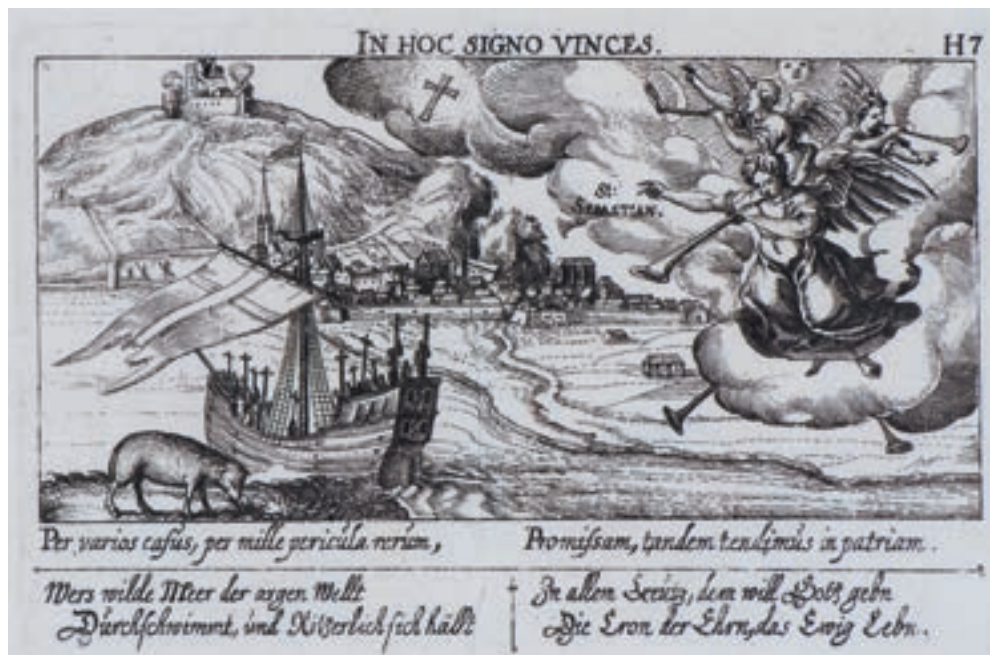 IN HOC SIGNO VINCES.
H7
St:
SEBASTIAN.
Per varios casus, per mille pericula rerum,
Promissam, tandem tendimus in patriam.
Wers wilde Meer der argen Wellt
Durchschwimmt, und Ritterlich sich hällt
In allem Creütz, dem will Gott gebn
Die Cron der Ehrn, das Ewig Lebn.